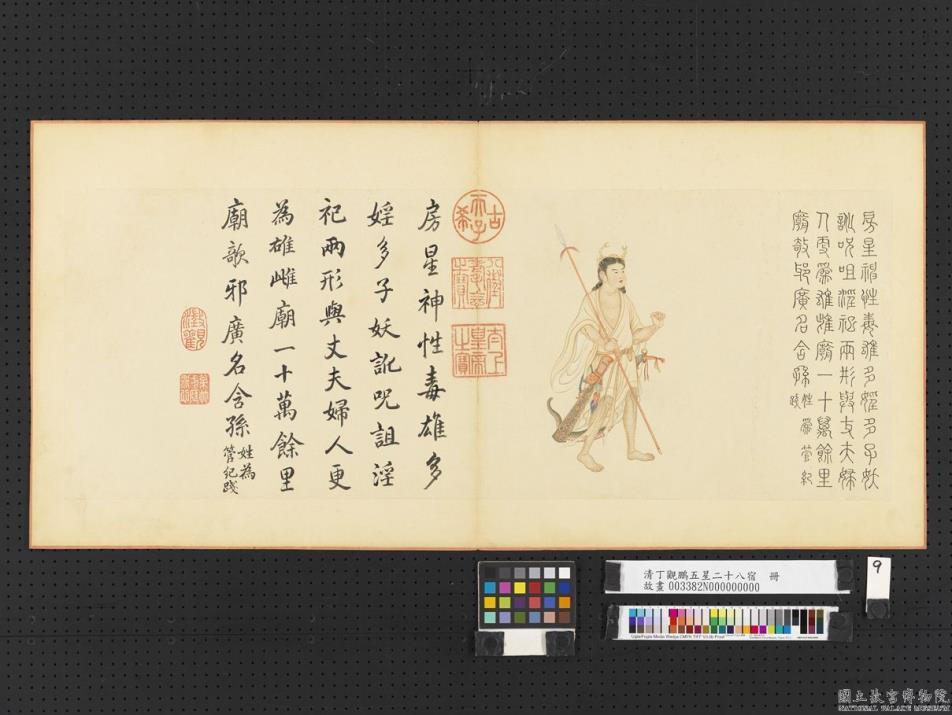 房星神性毒雄多婬多子妖
訛呪咀淫祀兩形與丈夫婦
人更為雄雌廟一十萬餘里
廟歌邪廣名含孫姓為管紀
踐
古希天子
八徵耄念之寶
太上皇帝之寶
房星神性毒雄多
婬多子妖訛呪詛淫
祀兩形與丈夫婦人更
為雄雌廟一十萬餘里
廟歌邪廣名含孫姓為
管紀踐
清丁觀鵬五星二十八宿 冊
故畫 003382N000000000
9
國立故宮博物院
NATIONAL PALACE MUSEUM